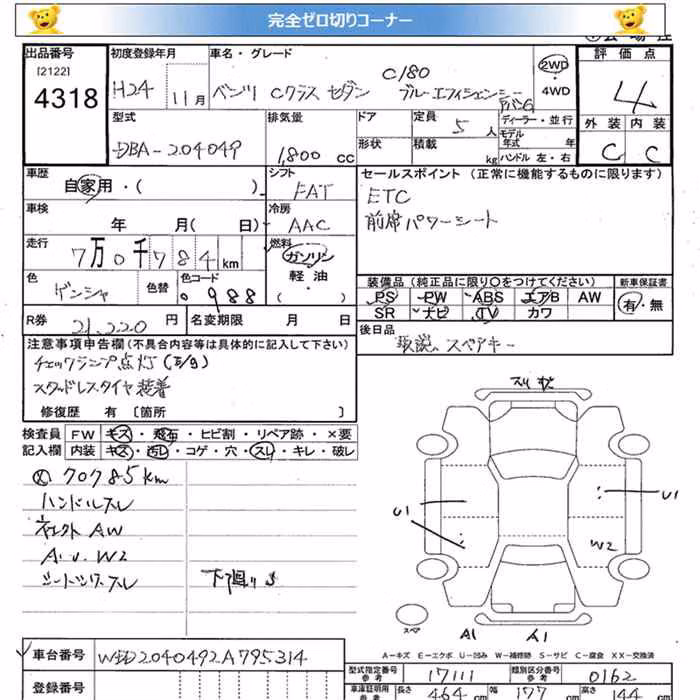 完全ゼロ切りコーナー
出品番号 [2122] 4318
初度登録年月 H24 11月
車名・グレード C180 ベンツ Cクラス セダン ブルーエフィシェンシー
2WD ・ 4WD
評価点 4
外装 内装
C C
型式 DBA-204049
排気量 1,800 CC
ドア 形状
定員 5 人
積載 kg
ディーラー・並行
モデル年式 年式
ハンドル 左・右
車歴 自家用・( )
シフト FAT
セールスポイント (正常に機能するものに限ります)
ETC
前席パワーシート
車検 年 月( 日)
冷房 AAC
走行 7万0千784km
燃料 ガソリン
軽油
( )
色 ゲンシャ
色替
色コード 988
装備品(純正品に限り○をつけてください) 新車保証書
PS PW ABS エアB AW 有・無
SR ナビ TV カワ
R券 21,220 円
名変期限 月 日
後日品 取説、スペアキー
注意事項申告欄(不具合内容等は具体的に記入して下さい)
チェックランプ点灯(E/g)
スタッドレスタイヤ装着
修復歴 有〔箇所 〕
検査員 FW キズ・飛石・ヒビ割・リペア跡・×要
記入欄 内装 キズ・汚レ・コゲ・穴・スレ・キレ・破レ
70785km
ハンドルスレ
AW
W2
スレ
下廻りS
スリキズ
U1
U1
W2
スペア
A1 A1
A-キズ E-エクボ U-凹み W-補修跡 S-サビ C-腐食 XX-交換済
車台番号 WDD2040492A795314
登録番号
型式指定番号 参考 17111
類別区分番号 参考 0162
車庫証明用 参考 長さ 464 cm 幅 177 cm 高さ 144 cm